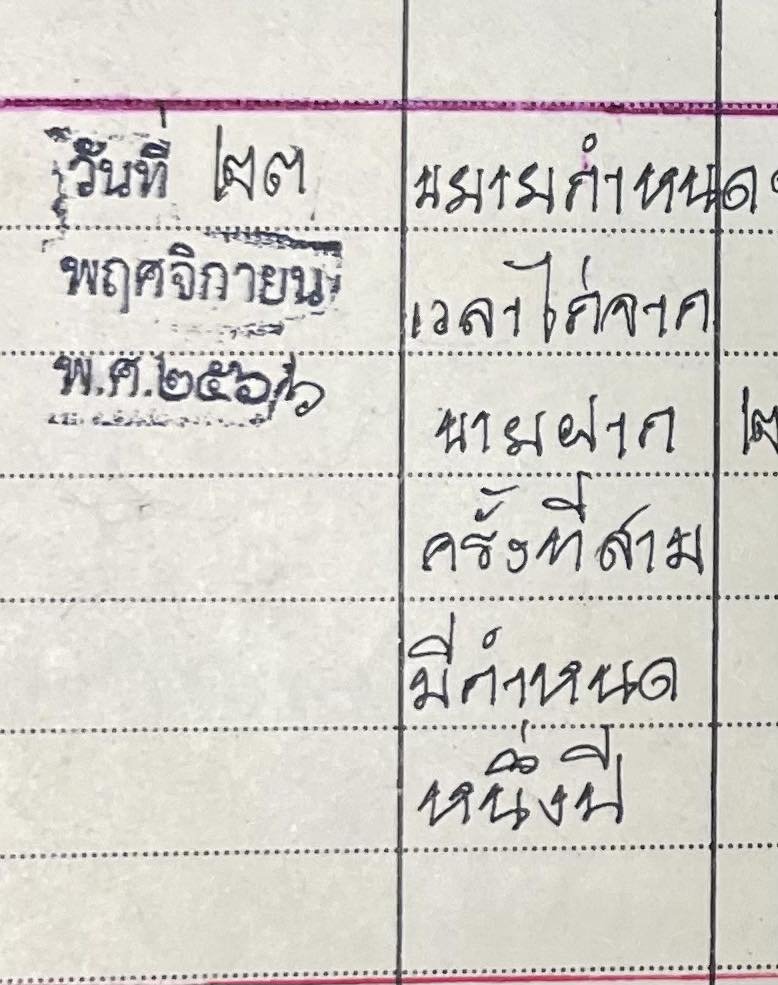 วันที่ ๒๓
พฤศจิกายน
พ.ศ.๒๕๖๖
ขยายกำหนด
เวลาไถ่จาก
ขายฝาก ๒
ครั้งที่สาม
มีกำหนด
หนึ่งปี